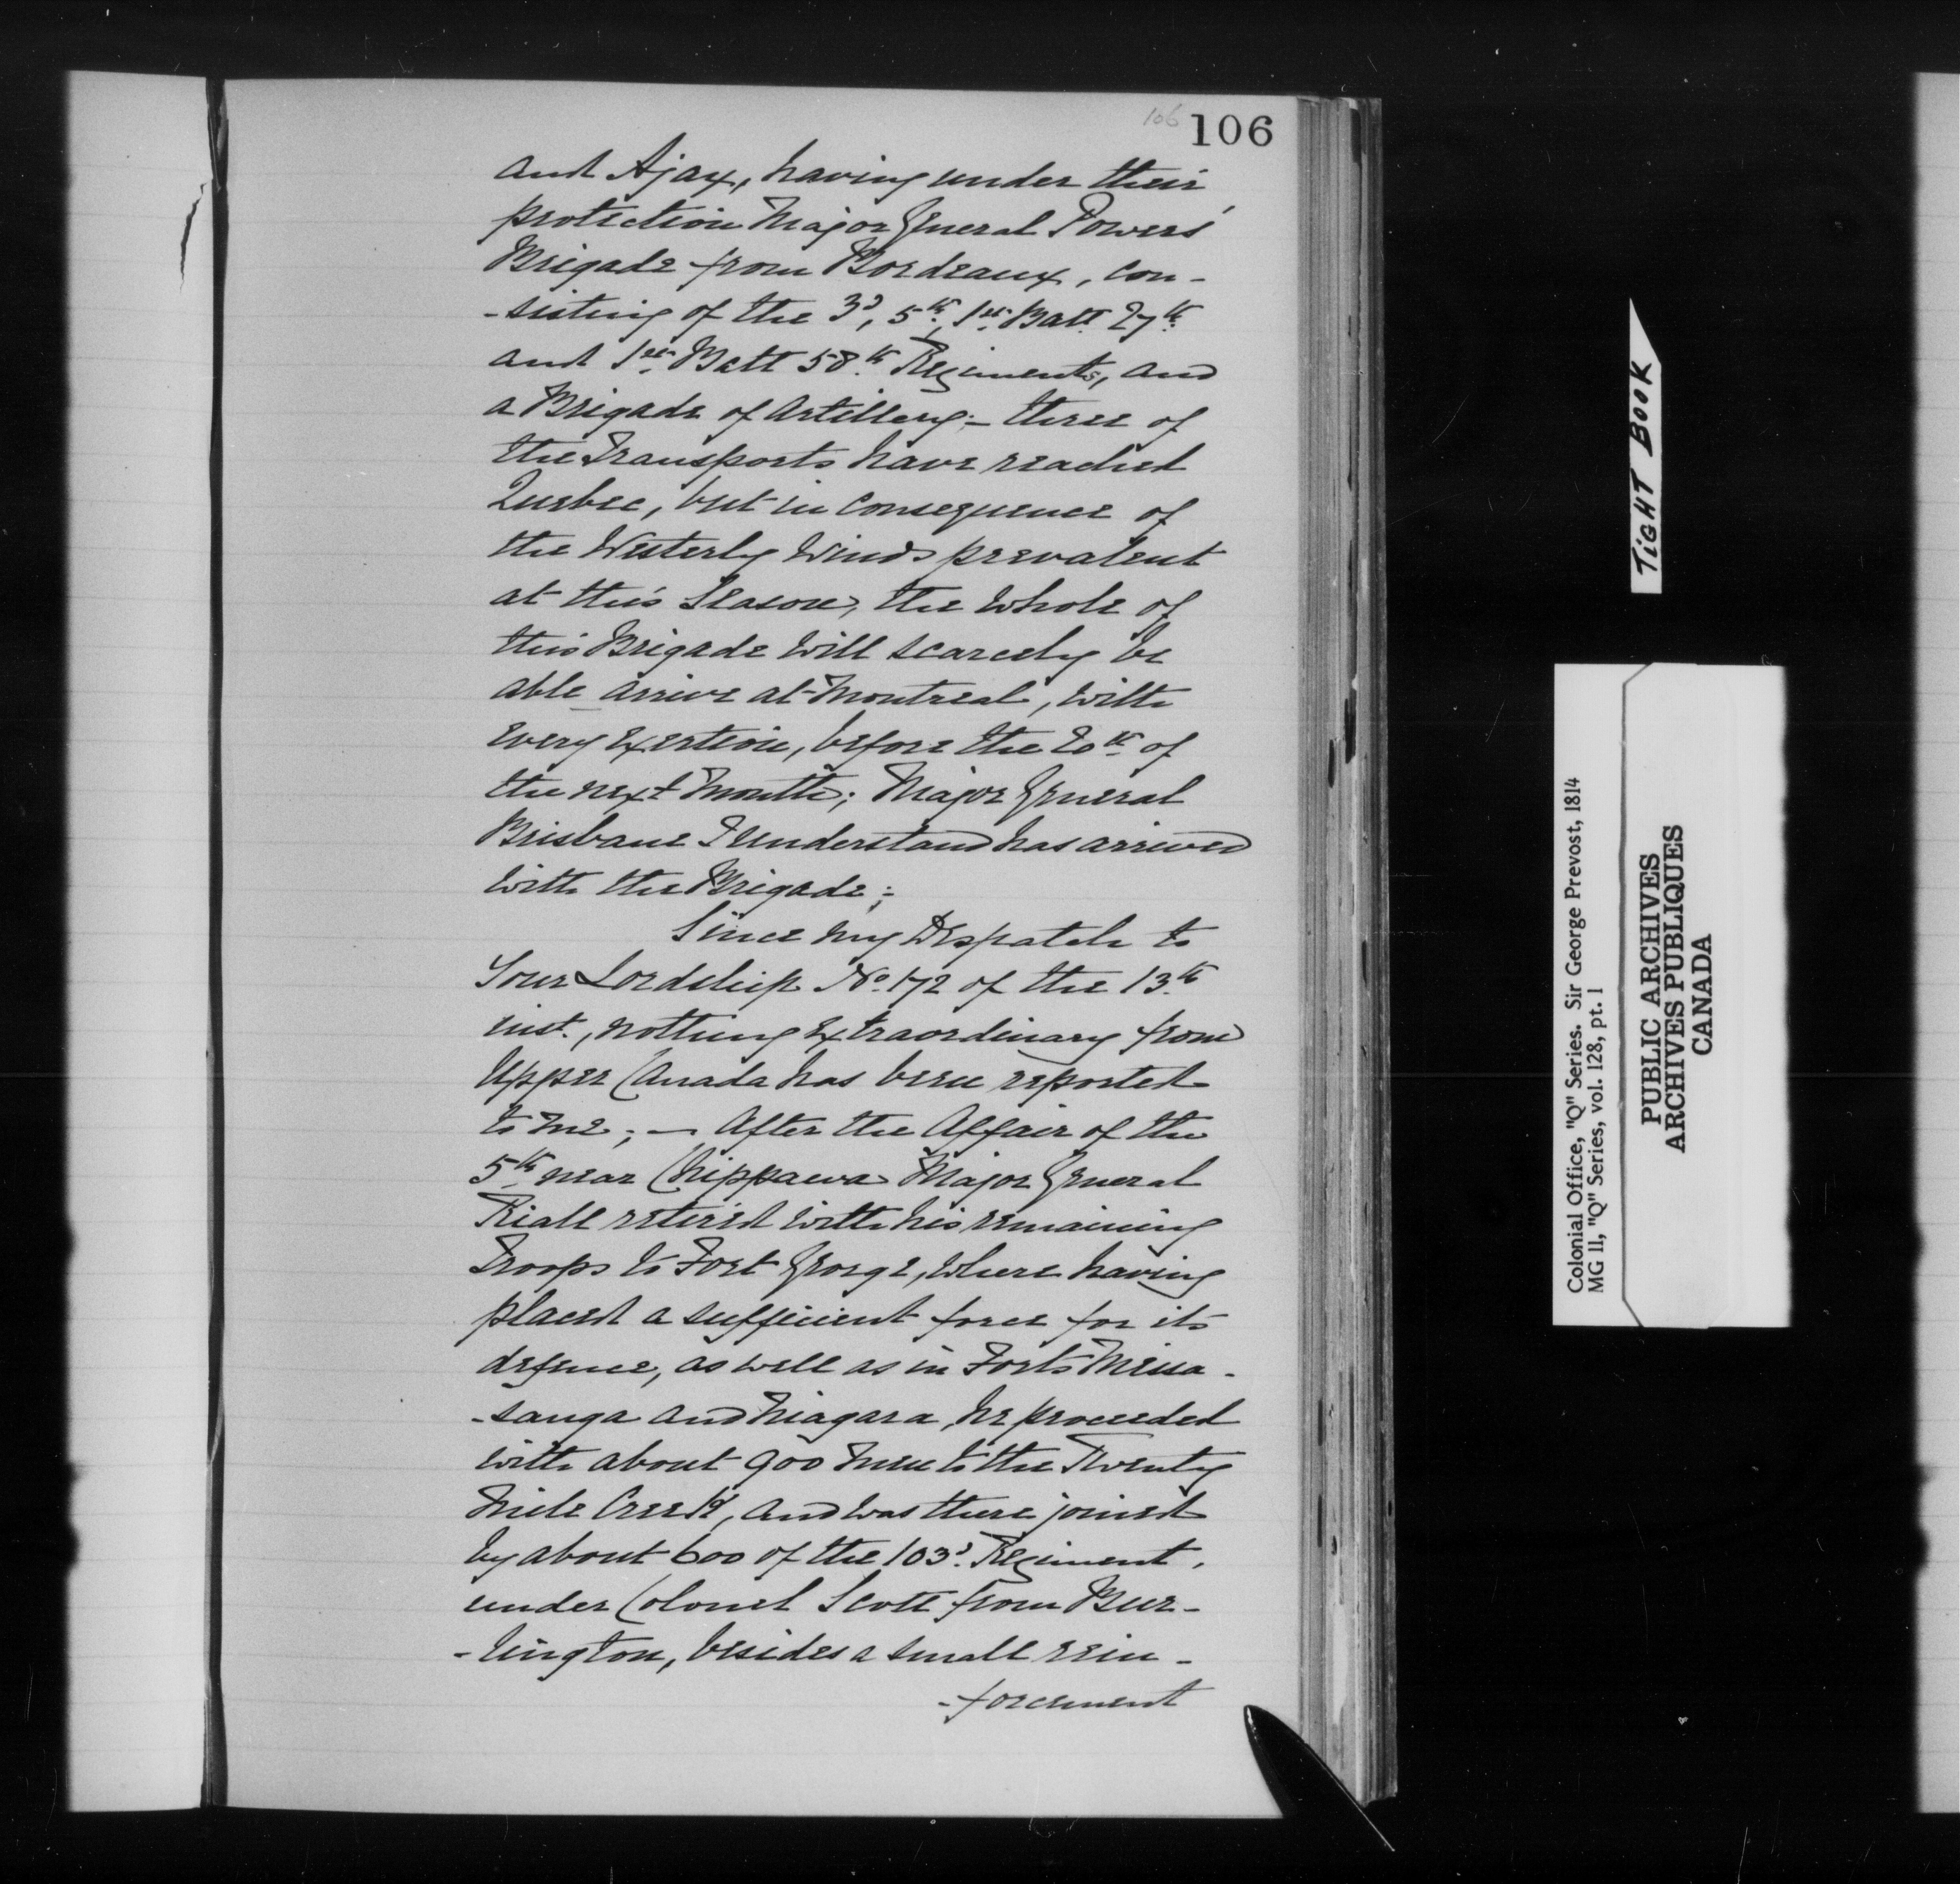 106
106
and Ajax, having under their
protection Major General Powers'
Brigade from Bordeaux, con-
-sisting of the 3d, 5th, 1st Batt. 27th
and 1st Batt 58th Regiments, and
a Brigade of Artillery;- three of
the Transports have reached
Quebec, but in consequence of
the Westerly Winds prevalent
at this Season, the whole of
this Brigade will scarcely be
able arrive at Montreal, with
every exertion, before the 20th of
the next Month; Major General
Brisbane I understand has arrived
with the Brigade;
Since my Despatch to
Your Lordship No. 172 of the 13th
inst., nothing extraordinary from
Upper Canada has been reported
to me; — After the Affair of the
5th near Chippawa Major General
Riall retired with his remaining
Troops to Fort George, where having
placed a sufficient force for its
defence, as well as in Forts Missa-
-sauga and Niagara, he proceeded
with about 900 men to the Twenty
Mile Creek, and was there joined
by about 600 of the 103d. Regiment,
under Colonel Scott from Bur-
-lington, besides a small rein-
-forcement
TIGHT BOOK
Colonial Office, "Q" Series. Sir George Prevost, 1814
MG 11, "Q" Series, vol. 128, pt. 1
PUBLIC ARCHIVES
ARCHIVES PUBLIQUES
CANADA